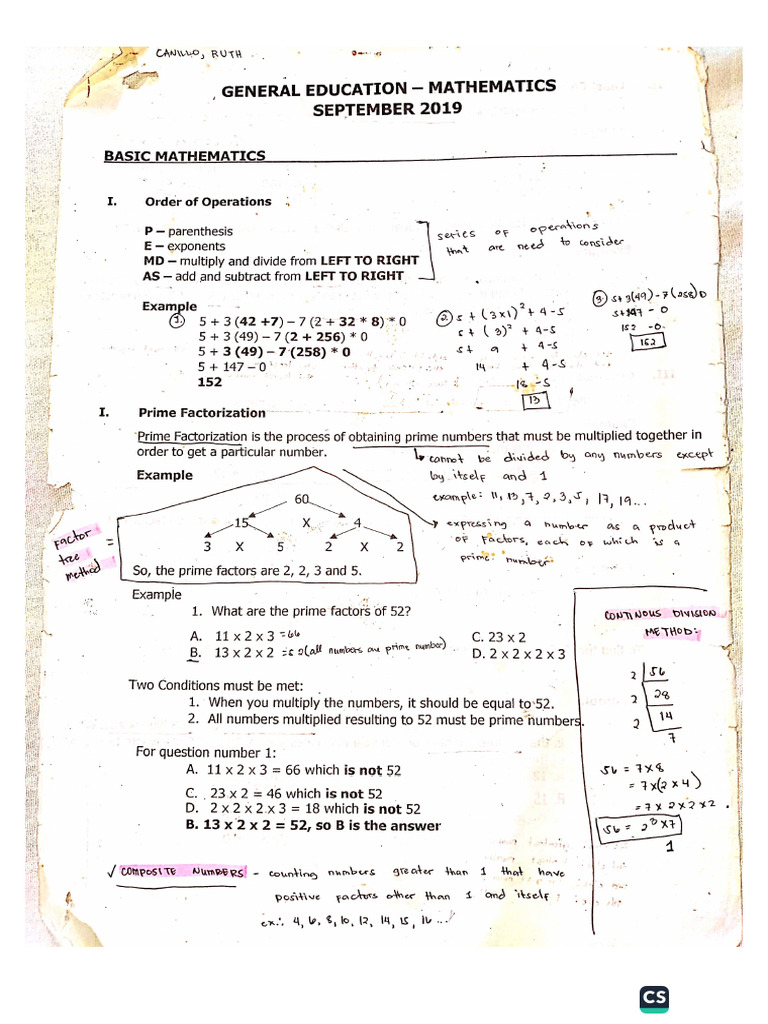 CANILLO, RUTH
GENERAL EDUCATION – MATHEMATICS
SEPTEMBER 2019
BASIC MATHEMATICS
I. Order of Operations
P – parenthesis
E – exponents
MD – multiply and divide from LEFT TO RIGHT
AS – add and subtract from LEFT TO RIGHT
series of operations
that are need to consider
Example
1. 5 + 3 (42 +7) – 7 (2 + 32 * 8) * 0
5 + 3 (49) – 7 (2 + 256) * 0
5 + 3 (49) – 7 (258) * 0
5 + 147 – 0
152
2. 5 + (3x1)² + 4-5
5 + (3)² + 4-5
5 + 9 + 4-5
14 + 4-5
18 -5
13
3. 5+3(49) -7(258)0
5+147 - 0
152 -0
152
I. Prime Factorization
Prime Factorization is the process of obtaining prime numbers that must be multiplied together in
order to get a particular number.
cannot be divided by any numbers except
by itself and 1
example: 11, 13, 7, 2, 3, 5, 17, 19...
Example
60
15 X 4
3 X 5 2 X 2
So, the prime factors are 2, 2, 3 and 5.
Factor
tree
method
=
expressing a number as a product
of factors, each of which is a
prime number
Example
1. What are the prime factors of 52?
A. 11 x 2 x 3 = 66
B. 13 x 2 x 2 (all numbers are prime number)
C. 23 x 2
D. 2 x 2 x 2 x 3
Two Conditions must be met:
1. When you multiply the numbers, it should be equal to 52.
2. All numbers multiplied resulting to 52 must be prime numbers.
For question number 1:
A. 11 x 2 x 3 = 66 which is not 52
C. 23 x 2 = 46 which is not 52
D. 2 x 2 x 2 x 3 = 18 which is not 52
B. 13 x 2 x 2 = 52, so B is the answer
CONTINOUS DIVISION
METHOD:
2 56
2 28
2 14
7
56 = 7x8
= 7x(2 x 4)
= 7x 2x2x2.
56 = 2³x7
1
✓ COMPOSITE NUMBERS - counting numbers greater than 1 that have
positive factors other than 1 and itself
ex: 4, 6, 8, 10, 12, 14, 15, 16...
CS